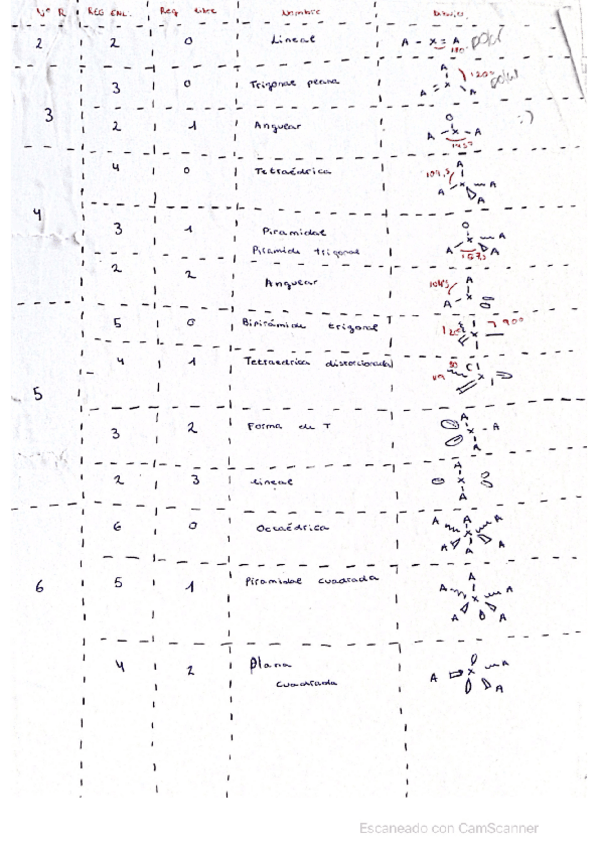 Nº R. REG ENL. Reg libre Nombre Dibujo
2 2 0 Lineal A - X = A 180º polar
3 3 0 Trigonal plana A X A A 120º polar
2 1 Angular A X A :)
4 4 0 Tetraédrica A X A A A
3 1 Piramidal A X A A
Piramide trigonal
2 2 Angular A X A
5 5 0 Bipirámide trigonal X 90º
4 1 Tetraedrica distorsionada X
3 2 Forma de T A X A A
2 3 Lineal A X A
6 6 0 Octaédrica A A A X A A A
5 1 Piramidal cuadrada A A A X A A
4 2 Plana cuadrada A X A A
Escaneado con CamScanner